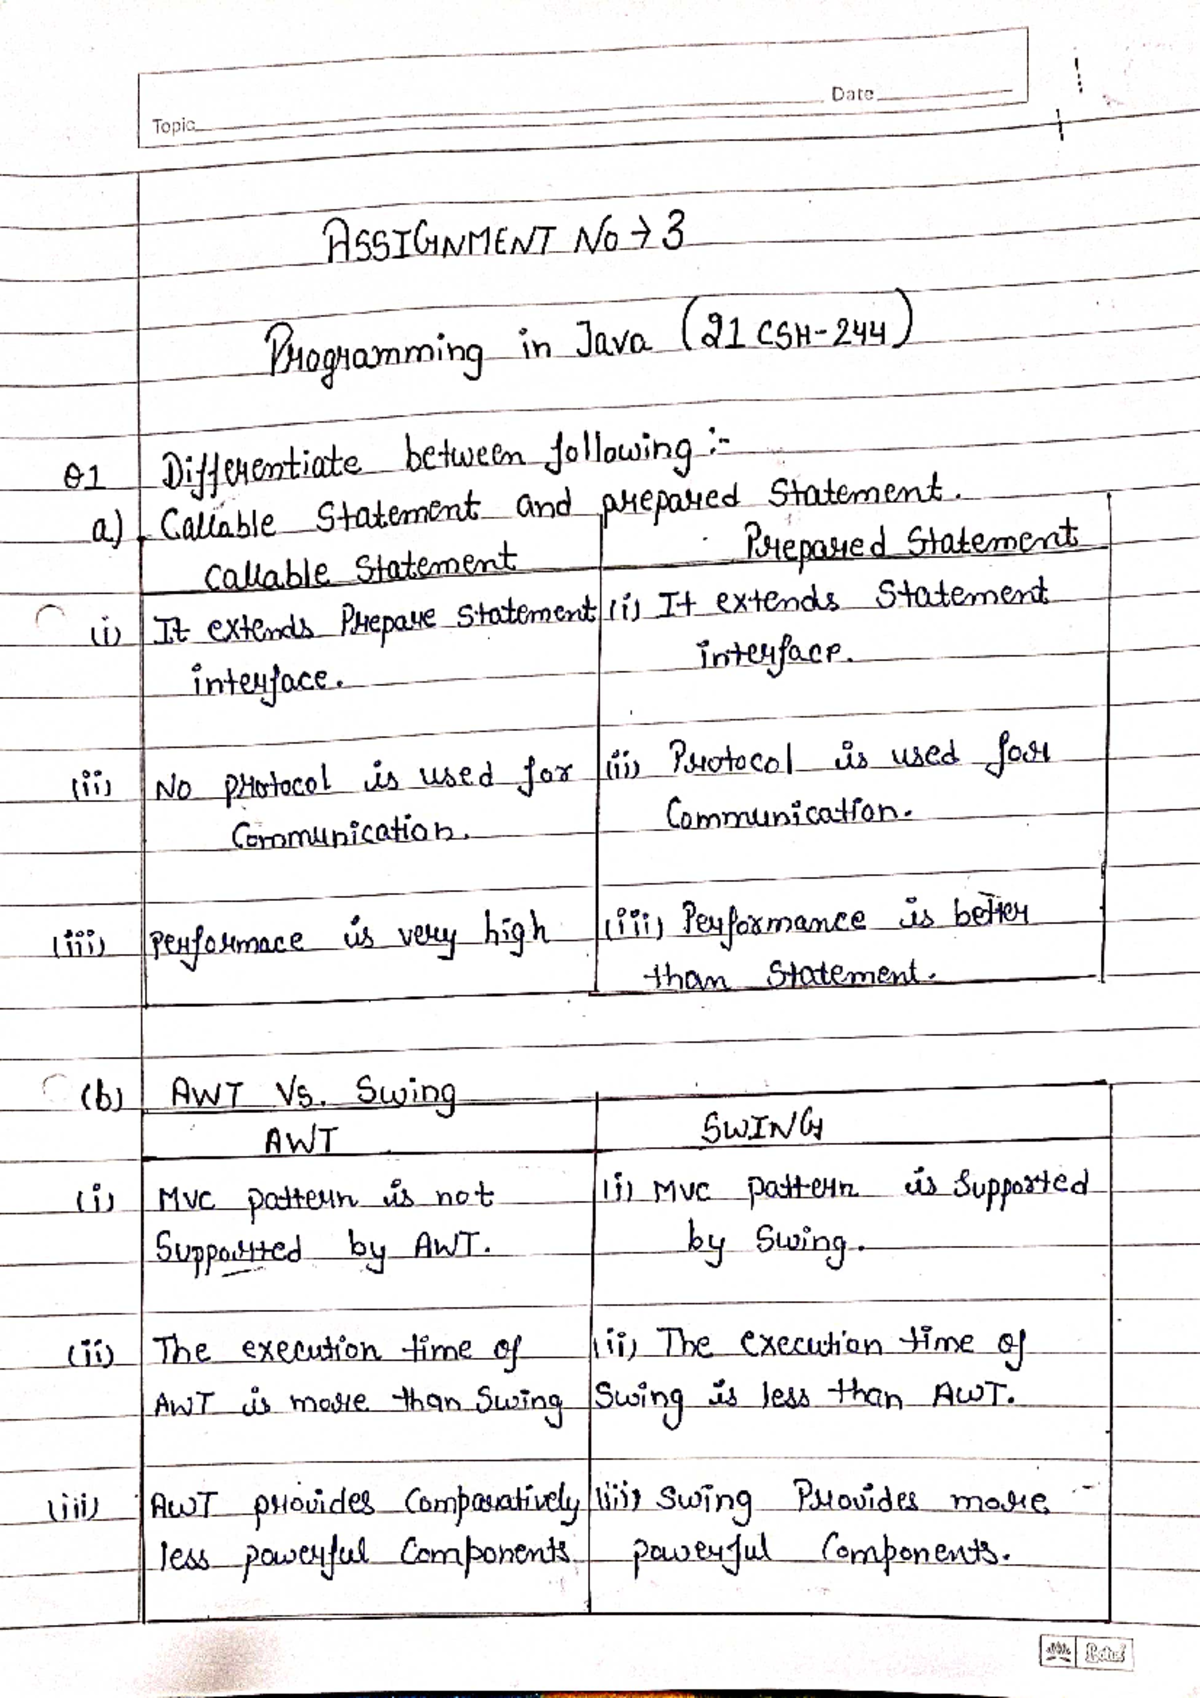 Topic
Date
ASSIGNMENT No → 3
Programming in Java (21 CSH-244)
Q1 Differentiate between following :-
a) Callable Statement and prepared Statement.
Callable Statement
Prepared Statement
(i) It extends Prepare Statement
interface.
(i) It extends Statement
interface.
(ii) No protocol is used for
Communication.
(ii) Protocol is used for
Communication.
(iii) Performace is very high
(iii) Performance is better
than Statement.
(b) AWT Vs. Swing
AWT
SWING
(i) MVC pattern is not
Supported by AWT.
(i) MVC pattern is Supported
by Swing.
(ii) The execution time of
AWT is more than Swing
(ii) The execution time of
Swing is less than AWT.
(iii) AWT provides Comparatively
less powerful Components.
(iii) Swing Provides more
powerful Components.